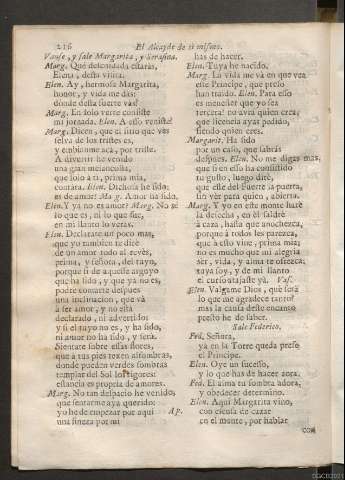 216 El Alcayde de si mismo.
Vanse, y sale Margarita, y Serafina.
Marg. Què descuidada estaràs,
Elena, desta visita.
Elen. Ay, hermosa Margarita,
honor, y vida me dàs:
dònde desta suerte vàs?
Marg. En solo verte consiste
mi jornada. Elen. A esso veniste?
Marg. Dicen, que el sitio que vès
selva de los tristes es,
y embianme acà, por triste.
A divertir he venido
una gran melancolia,
que solo à ti, prima mia,
contàra. Elen. Dichosa he sido:
es de amor? Marg. Amor ha sido.
Elen. Y ya no es amor? Marg. No sè
lo que es, ni lo que fue,
en mi llanto lo veràs.
Elen. Declarate un poco mas,
que yo tambien te dirè
de un amor todo al revès,
prima, y señora, del tuyo,
porque si de aquesse arguyo
que ha sido, y que yà no es,
podrè contarte despues
una inclinacion, que và
à ser amor, y no està
declarado, ni advertido;
y si el tuyo no es, y ha sido,
mi amor no ha sido, y serà.
Sientate sobre estas flores,
que à tus pies texen alfombras,
donde pueden verdes sombras
templar del Sol los rigores:
estancia es propria de amores.
Marg. No tan despacio he venido,
que sentarme aya querido:
yo he de empezar por aqui Ap.
una fineza por mi
has de hacer.
Elen. Tuya he nacido.
Marg. La vida me và en que vea
este Principe, que preso
han traido. Elen. Para esso
es menester que yo sea
tercera? no avrà quien crea,
que licencia ayas pedido,
siendo quien eres.
Margarit. Ha sido
por un caso, que sabràs
despues. Elen. No me digas mas,
que si en esso ha consistido
tu gusto, luego dirè,
que estè del Fuerte la puerta,
sin vèr para quien, abierta.
Marg. Y yo en este monte harè
la desecha, en èl saldrè
à caza, hasta que anochezca,
porque à todos les parezca,
que à esto vine, prima mia;
no es mucho que mi alegria
ser, vida, y alma te ofrezca;
tuya soy, y de mi llanto
el curso atajaste yà. Vas.
Elen. Valgame Dios, què serà
lo que me agradece tanto?
mas la causa deste encanto
presto he de saber.
Sale Federico.
Fed. Señora,
ya en la Torre queda preso
el Principe.
Elen. Oye un sucesso,
y lo que has de hacer aora.
Fed. El alma tu sombra adora,
y obedecer determino.
Elen. Aqui Margarita vino,
con escusa de cazar
en el monte, por hablar
con